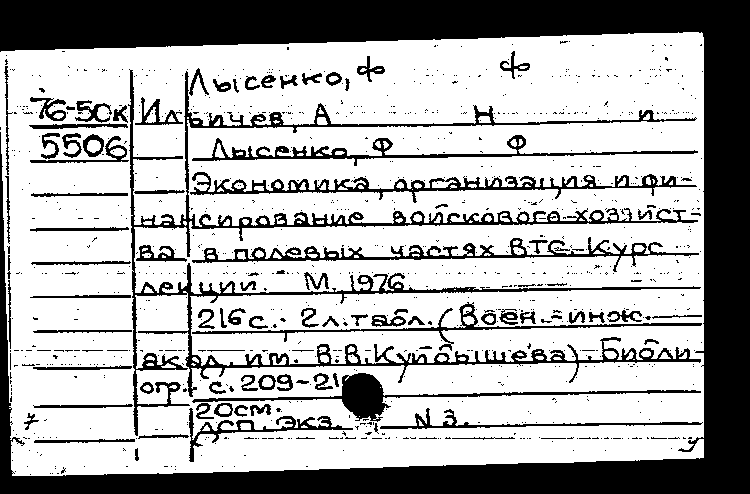 Лысенко, Ф Ф
76-50к Ильичев, А Н и
5506 Лысенко, Ф Ф
Экономика, организация и фи-
нансирование войскового хозяйст-
ва в полевых частях ВТС. Курс
лекций. М., 1976.
216 с.; 2 л. табл. (Воен.-инж.
акад. им. В.В.Куйбышева). Библи-
огр.: с. 209-21
20см.
ДСП. Экз. N 3.